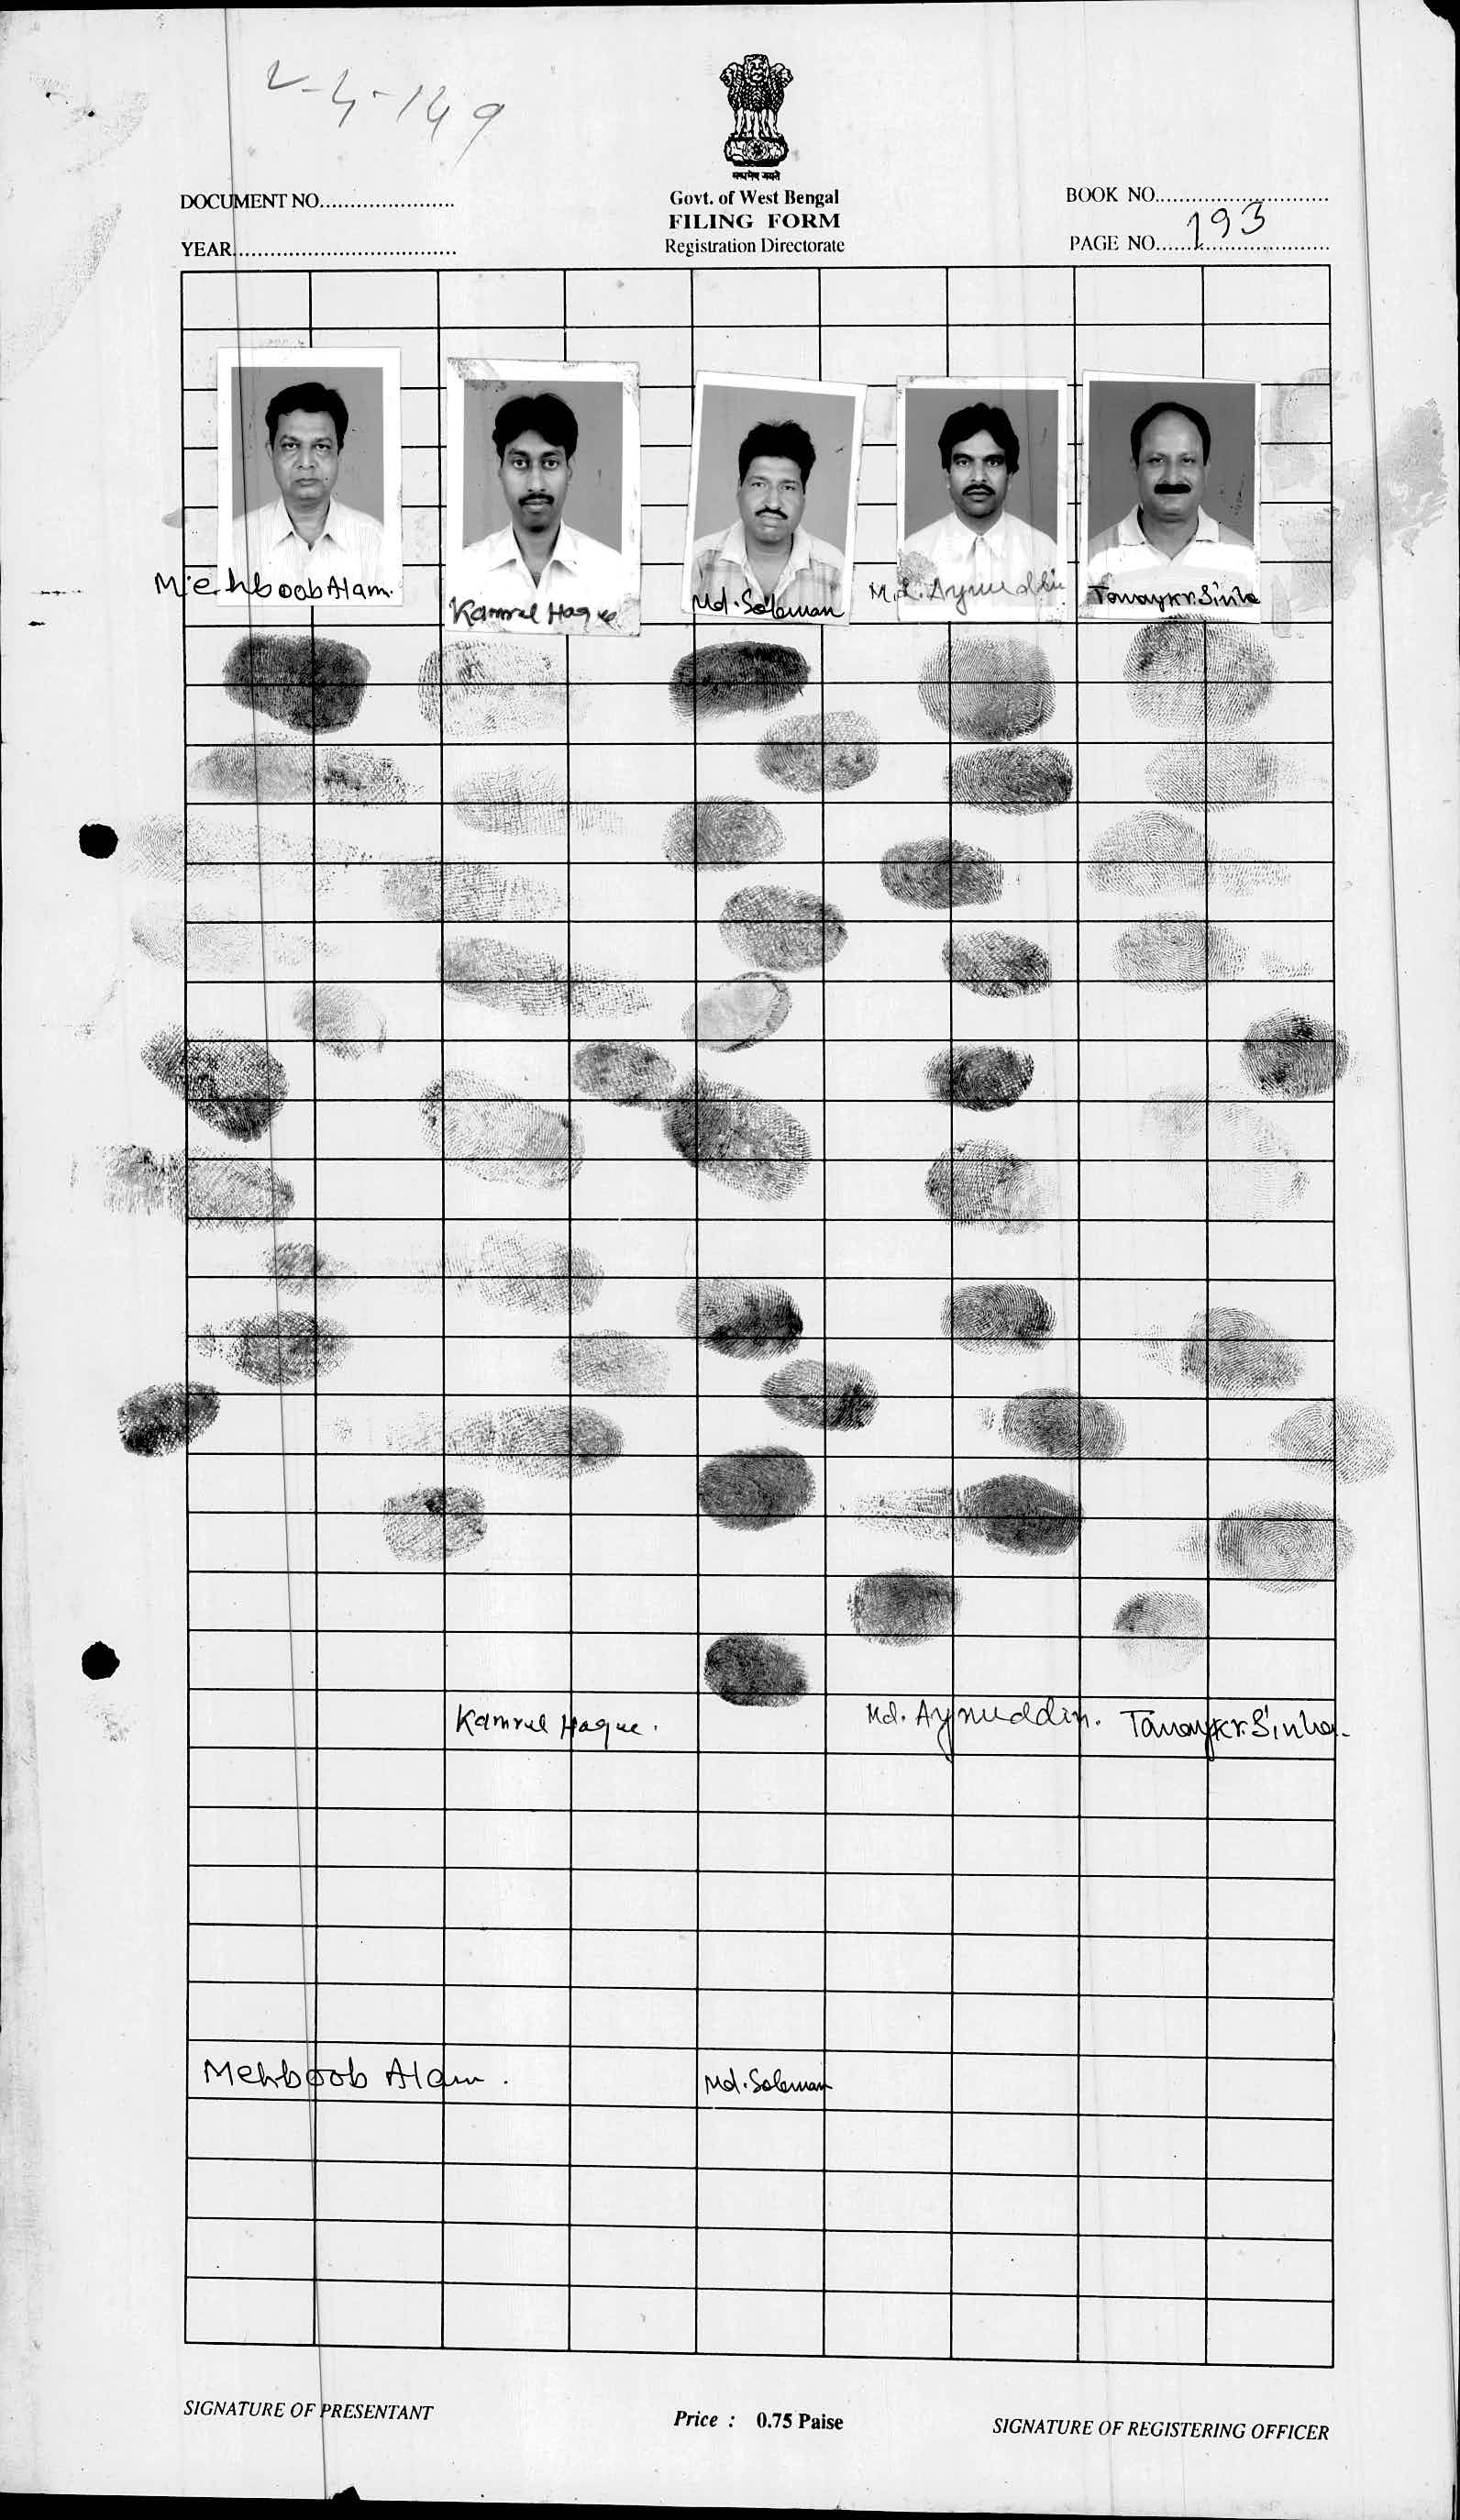 v-4-149
सत्यमेव जयते
DOCUMENT NO......................
Govt. of West Bengal
BOOK NO.............................
FILING FORM
YEAR....................................
Registration Directorate
PAGE NO......193......................
Mehboob Alam.
Kamrul Haque
Md. Soleman
Md. Aynuddin
Tanay Kr. Sinha
Kamrul Haque.
Md. Aynuddin.
Tanay Kr. Sinha.
Mehboob Alam.
Md. Soleman
SIGNATURE OF PRESENTANT
Price : 0.75 Paise
SIGNATURE OF REGISTERING OFFICER